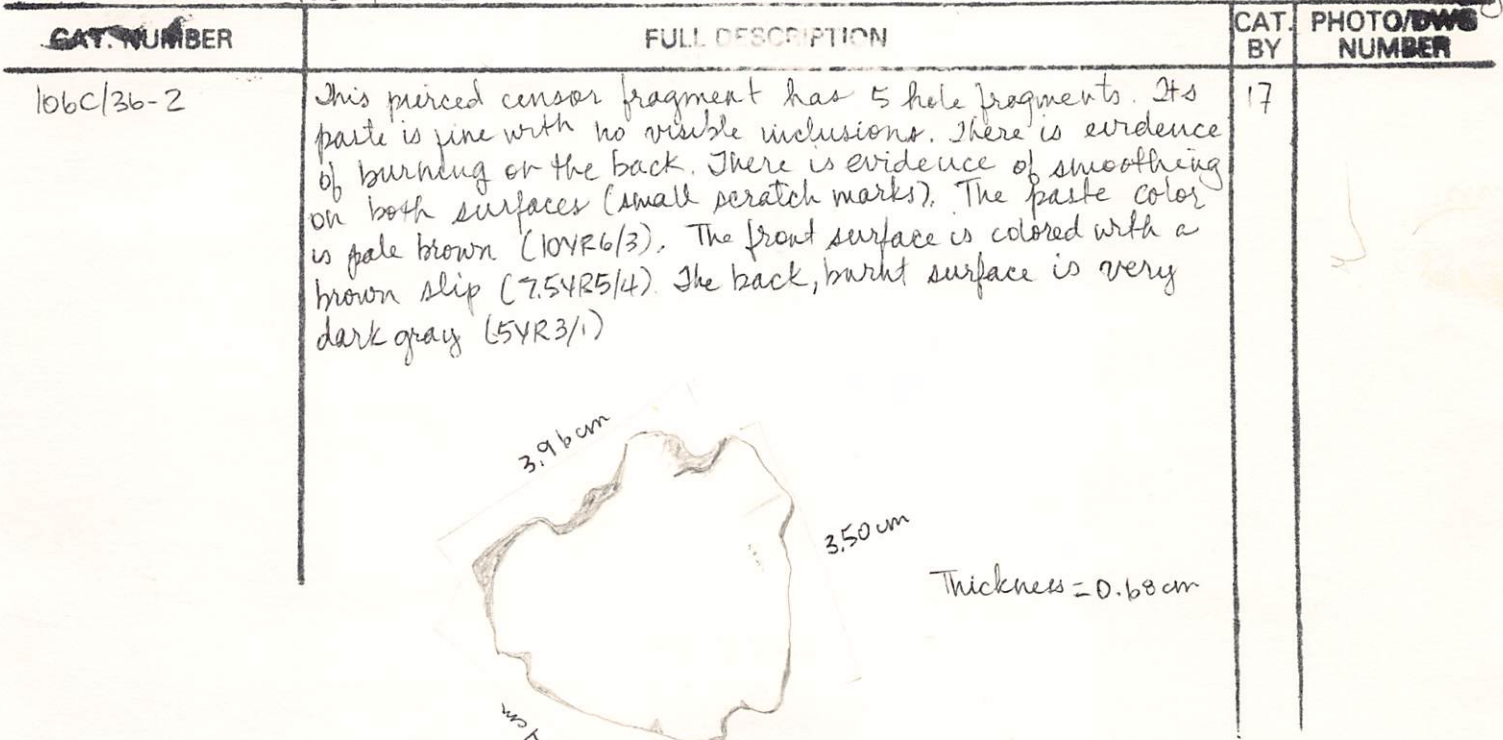 CAT. NUMBER
FULL DESCRIPTION
CAT. BY
PHOTO/DWG NUMBER
106C/36-2
This pierced censor fragment has 5 hole fragments. Its
paste is fine with no visible inclusions. There is evidence
of burning on the back. There is evidence of smoothing
on both surfaces (small scratch marks). The paste color
is pale brown (10YR6/3). The front surface is colored with a
brown slip (7.5YR5/4). The back, burnt surface is very
dark gray (5YR3/1)
17
3.96 cm
3.50 cm
Thickness = 0.68 cm
cm